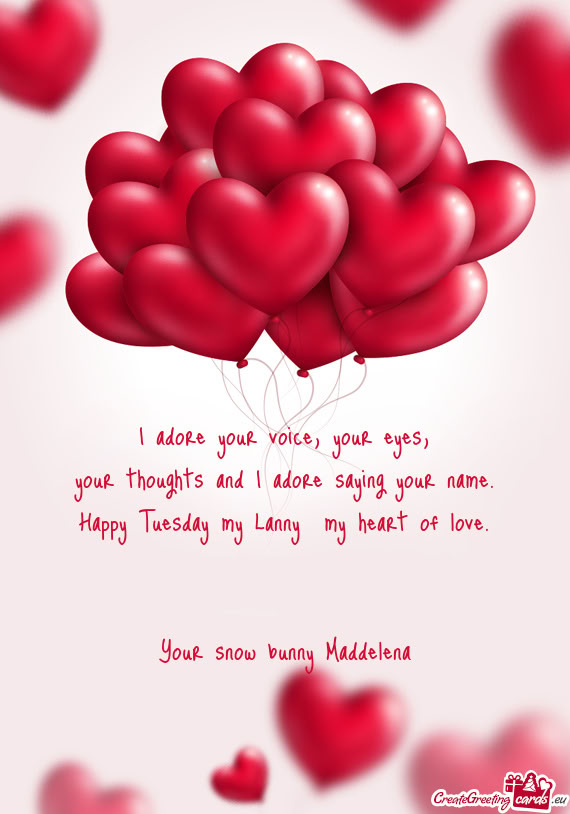 I adore your voice, your eyes,
your thoughts and I adore saying your name.
Happy Tuesday my Lanny  my heart of love.
Your snow bunny Maddelena
CreateGreeting cards.eu